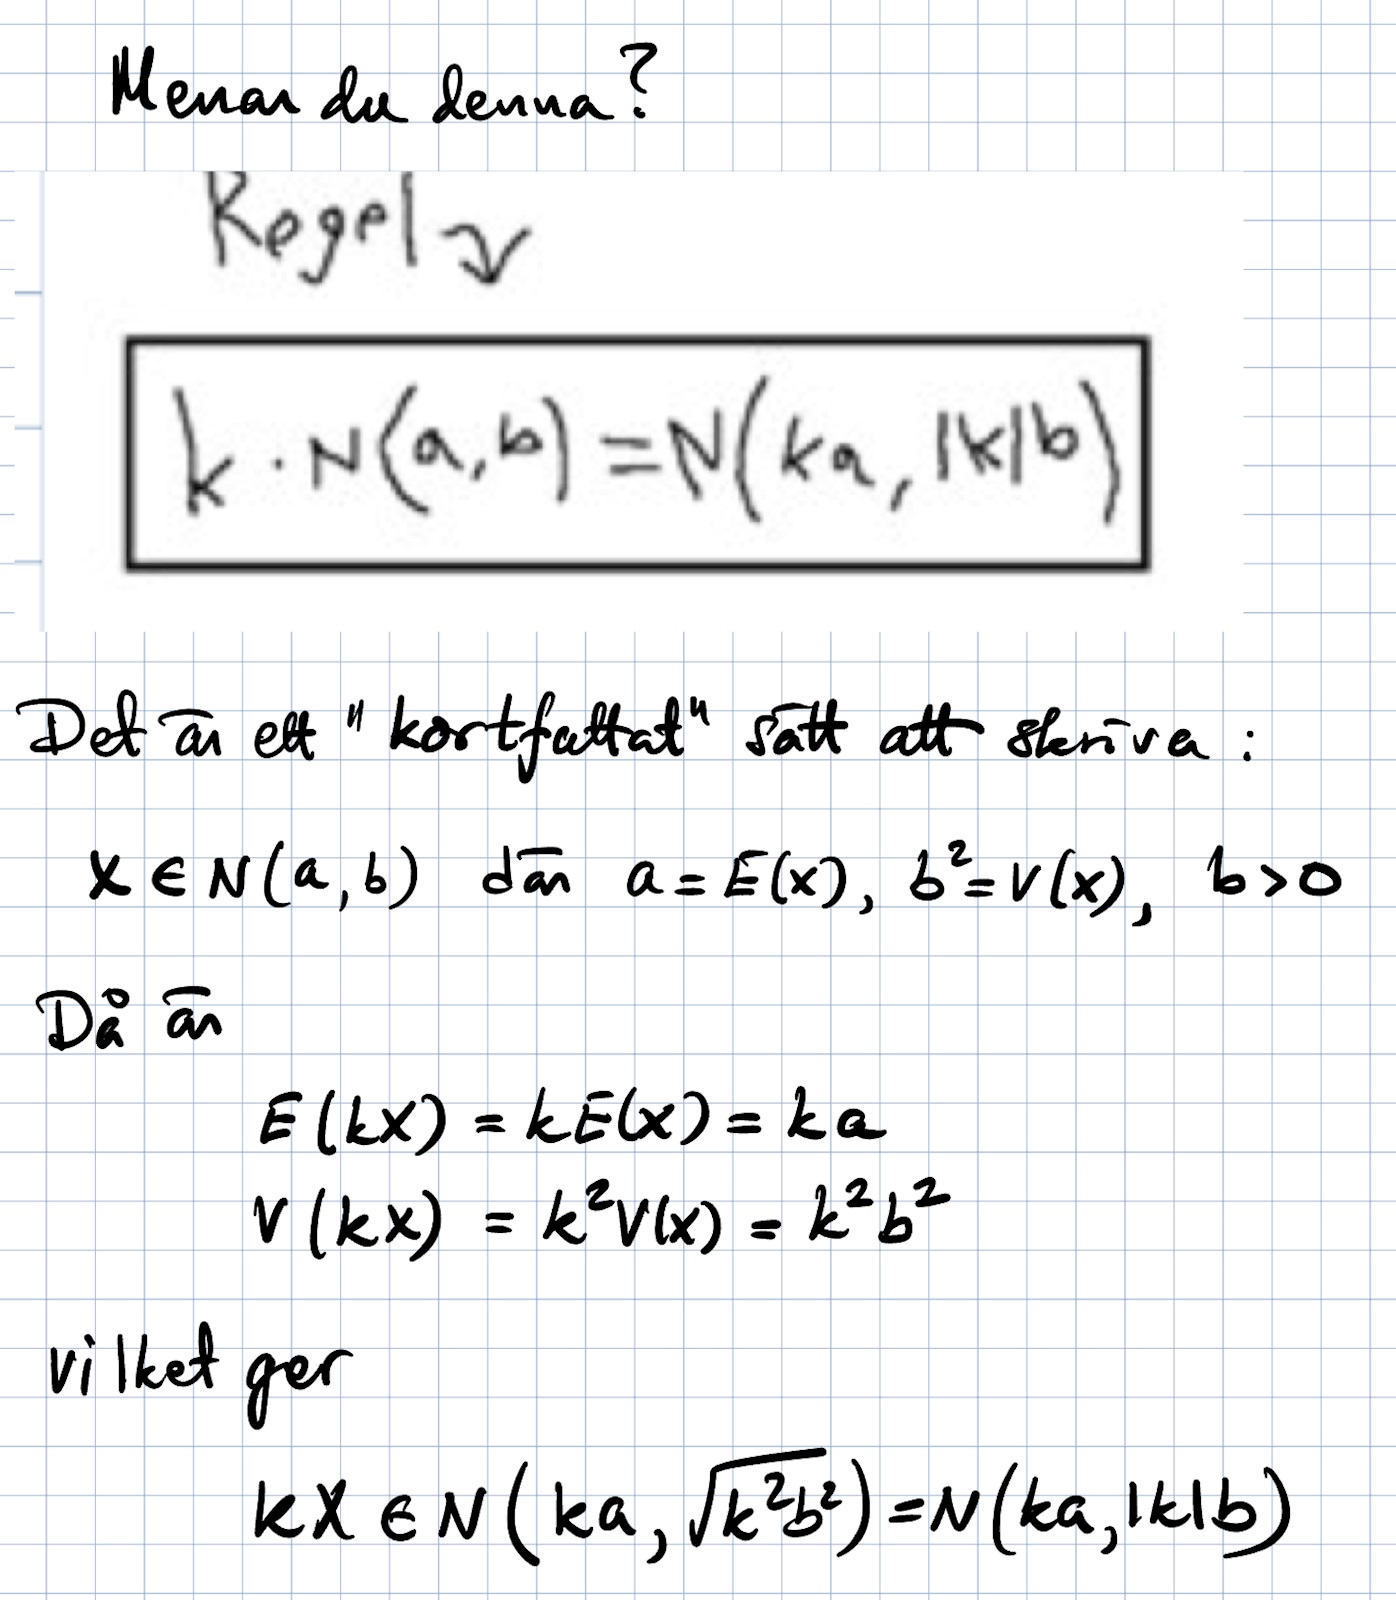 Menar du denna?
Regel
k · N(a, b) = N(ka, |k|b)
Det är ett "kortfattat" sätt att skriva:
X ∈ N(a, b) där a = E(X), b² = V(X), b > 0
Då är
E(kX) = kE(X) = ka
V(kX) = k²V(X) = k²b²
vilket ger
kX ∈ N(ka, √(k²b²)) = N(ka, |k|b)